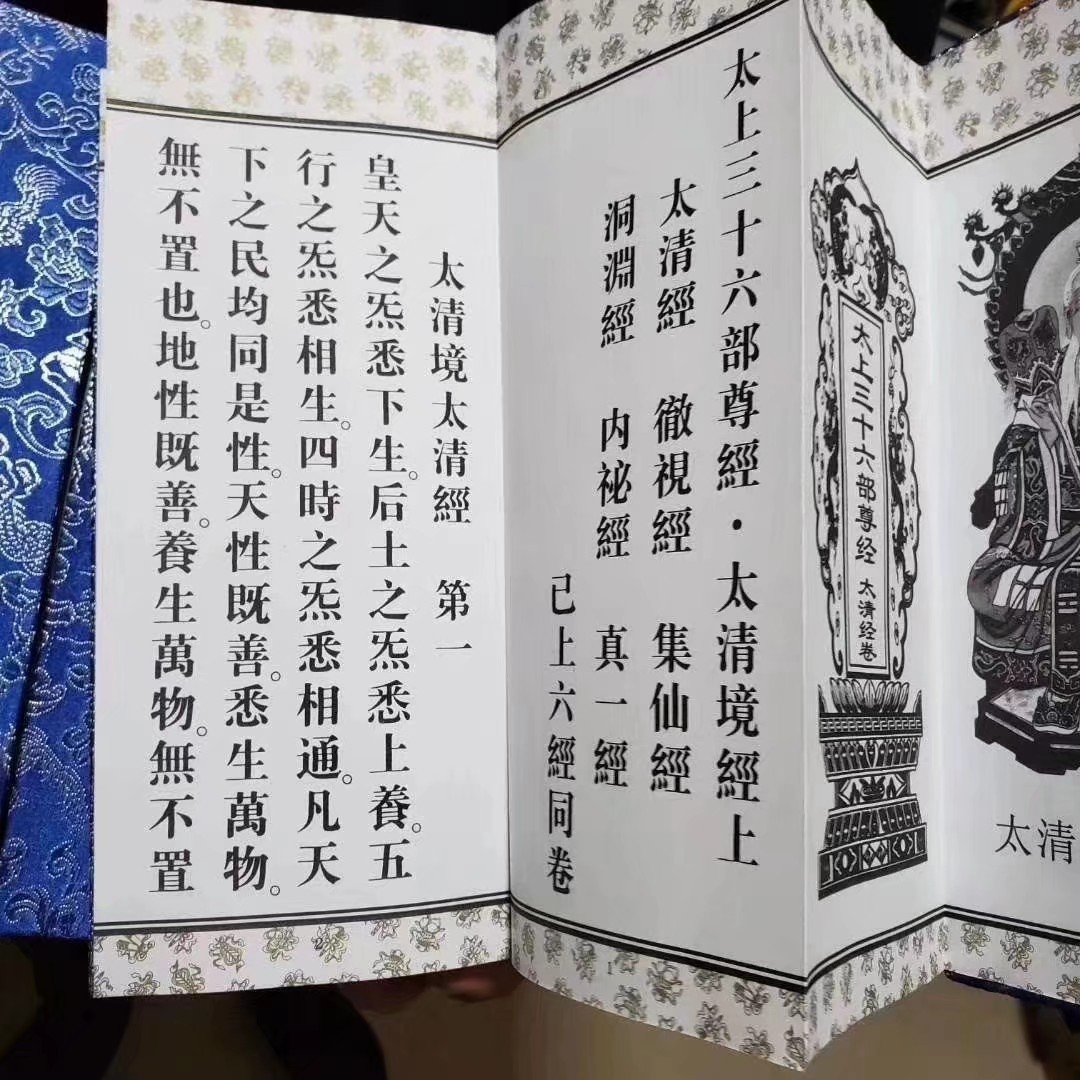 太清
太上三十六部尊经 太清经卷
太上三十六部尊經·太清境經上
太清經 徹視經 集仙經
洞淵經 内祕經 真一經
已上六經同卷
1
太清境太清經 第一
皇天之炁悉下生。后土之炁悉上養。五
行之炁悉相生。四時之炁悉相通。凡天
下之民均同是性。天性既善。悉生萬物。
無不置也。地性既善。養生萬物。無不置
2